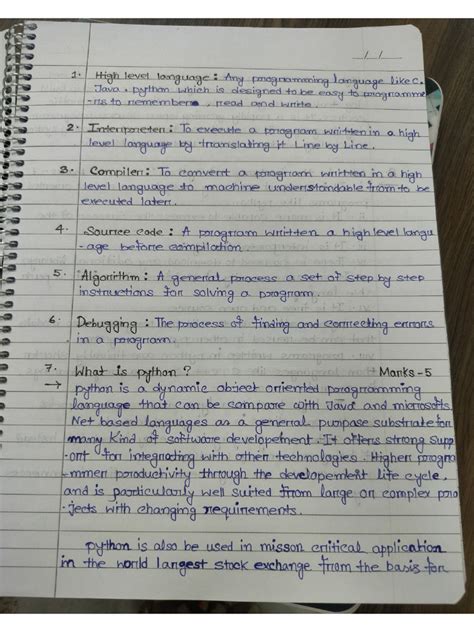 1. High level language : Any programming language like C.
Java, python which is designed to be easy to programme
-rs to remember, read and write.
2. Interpreter : To execute a program written in a high
level language by translating it Line by Line.
3. Compiler : To convert a program written in a high
level language to machine understandable from to be
executed later.
4. Source code : A program written a high level langu
-age before compilation
5. Algorithm : A general process a set of step by step
instructions for solving a program.
6. Debugging : The process of finding and correcting errors
in a program.
7. What is python ? Marks - 5
→ python is a dynamic object oriented programming
language that can be compare with Java and microsofts
Net based languages as a general purpose substrate for
many kind of software developement. It offers strong supp
-ort for integrating with other technologies. Higher progra
-mmer productivity through the developement life cycle,
and is particularly well suited from large or complex pro
-jects with changing requirements.
python is also be used in misson critical application
in the world largest stock exchange from the basis for